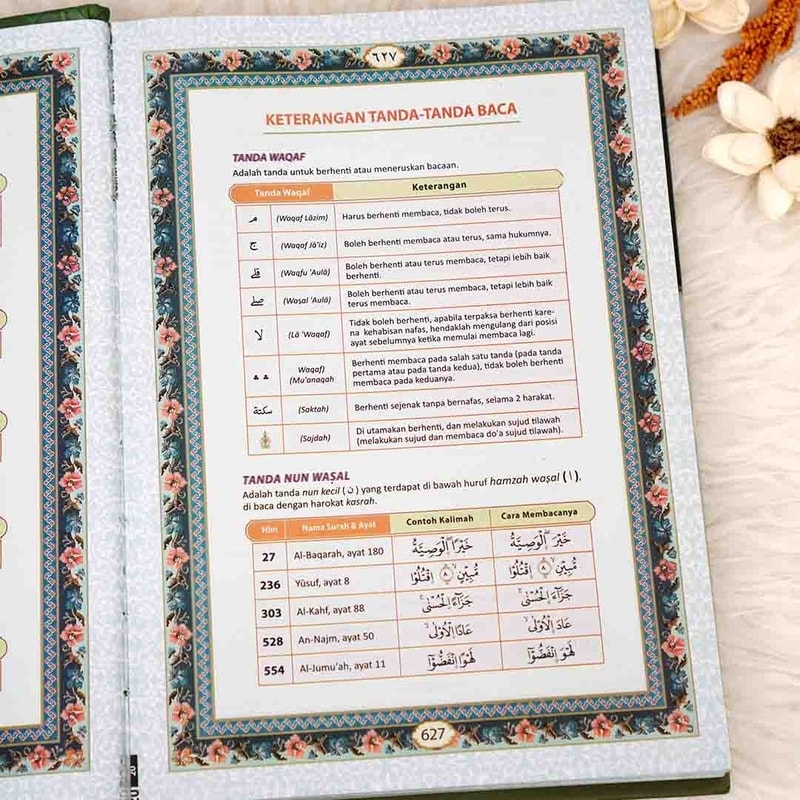 ٦٢٧
KETERANGAN TANDA-TANDA BACA
TANDA WAQAF
Adalah tanda untuk berhenti atau meneruskan bacaan.
Tanda Waqaf Keterangan
مـ (Waqaf Lāzim) Harus berhenti membaca, tidak boleh terus.
ج (Waqaf Jā'iz) Boleh berhenti membaca atau terus, sama hukumnya.
قلى (Waqfu 'Aulā) Boleh berhenti atau terus membaca, tetapi lebih baik
berhenti.
صلى (Waṣal 'Aulā) Boleh berhenti atau terus membaca, tetapi lebih baik
terus membaca.
لا (Lā 'Waqaf) Tidak boleh berhenti, apabila terpaksa berhenti kare-
na kehabisan nafas, hendaklah mengulang dari posisi
ayat sebelumnya ketika memulai membaca lagi.
ۛ ۛ Waqaf)
(Mu'anaqah
Berhenti membaca pada salah satu tanda (pada tanda
pertama atau pada tanda kedua), tidak boleh berhenti
membaca pada keduanya.
سكتة (Saktah) Berhenti sejenak tanpa bernafas, selama 2 harakat.
(Sajdah) Di utamakan berhenti, dan melakukan sujud tilawah
(melakukan sujud dan membaca do'a sujud tilawah).
TANDA NUN WAṢAL
Adalah tanda nun kecil (ن) yang terdapat di bawah huruf hamzah waṣal (ا),
di baca dengan harokat kasrah.
Hlm Nama Surah & Ayat Contoh Kalimah Cara Membacanya
27 Al-Baqarah, ayat 180 خَيْرًا ۨالْوَصِيَّةُ خَيْرَ ــنِ الْوَصِيَّةُ
236 Yūsuf, ayat 8 مُّبِيْنٍ ٨ اقْتُلُوْا مُّبِيْنِ ٨ اقْتُلُوْا
303 Al-Kahf, ayat 88 جَزَاۤءً ۨالْحُسْنٰى جَزَاۤءَ ــنِ الْحُسْنٰى
528 An-Najm, ayat 50 عَادًا ۨالْاُوْلٰى عَادَ ــنِ الْاُوْلٰى
554 Al-Jumu'ah, ayat 11 لَهْوًا ۨانْفَضُّوْٓا لَهْوَ ــنِ انْفَضُّوْٓا
627